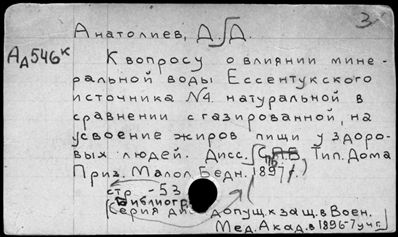 3
Анатолиев, Д. Д.
АД546к
К вопросу о влиянии мине-
ральной воды Ессентукского
источника №4. натуральной в
сравнении с газированной, на
усвоение жиров пищи у здоро-
вых людей. Дисс. СПБ, Тип. Дома
Приз. Малол. Бедн. 1897 г.
стр. - 53
Библиогр
(Серия дис допущ. к защ. в Воен.
Мед. Акад. в 1896-7 уч г)